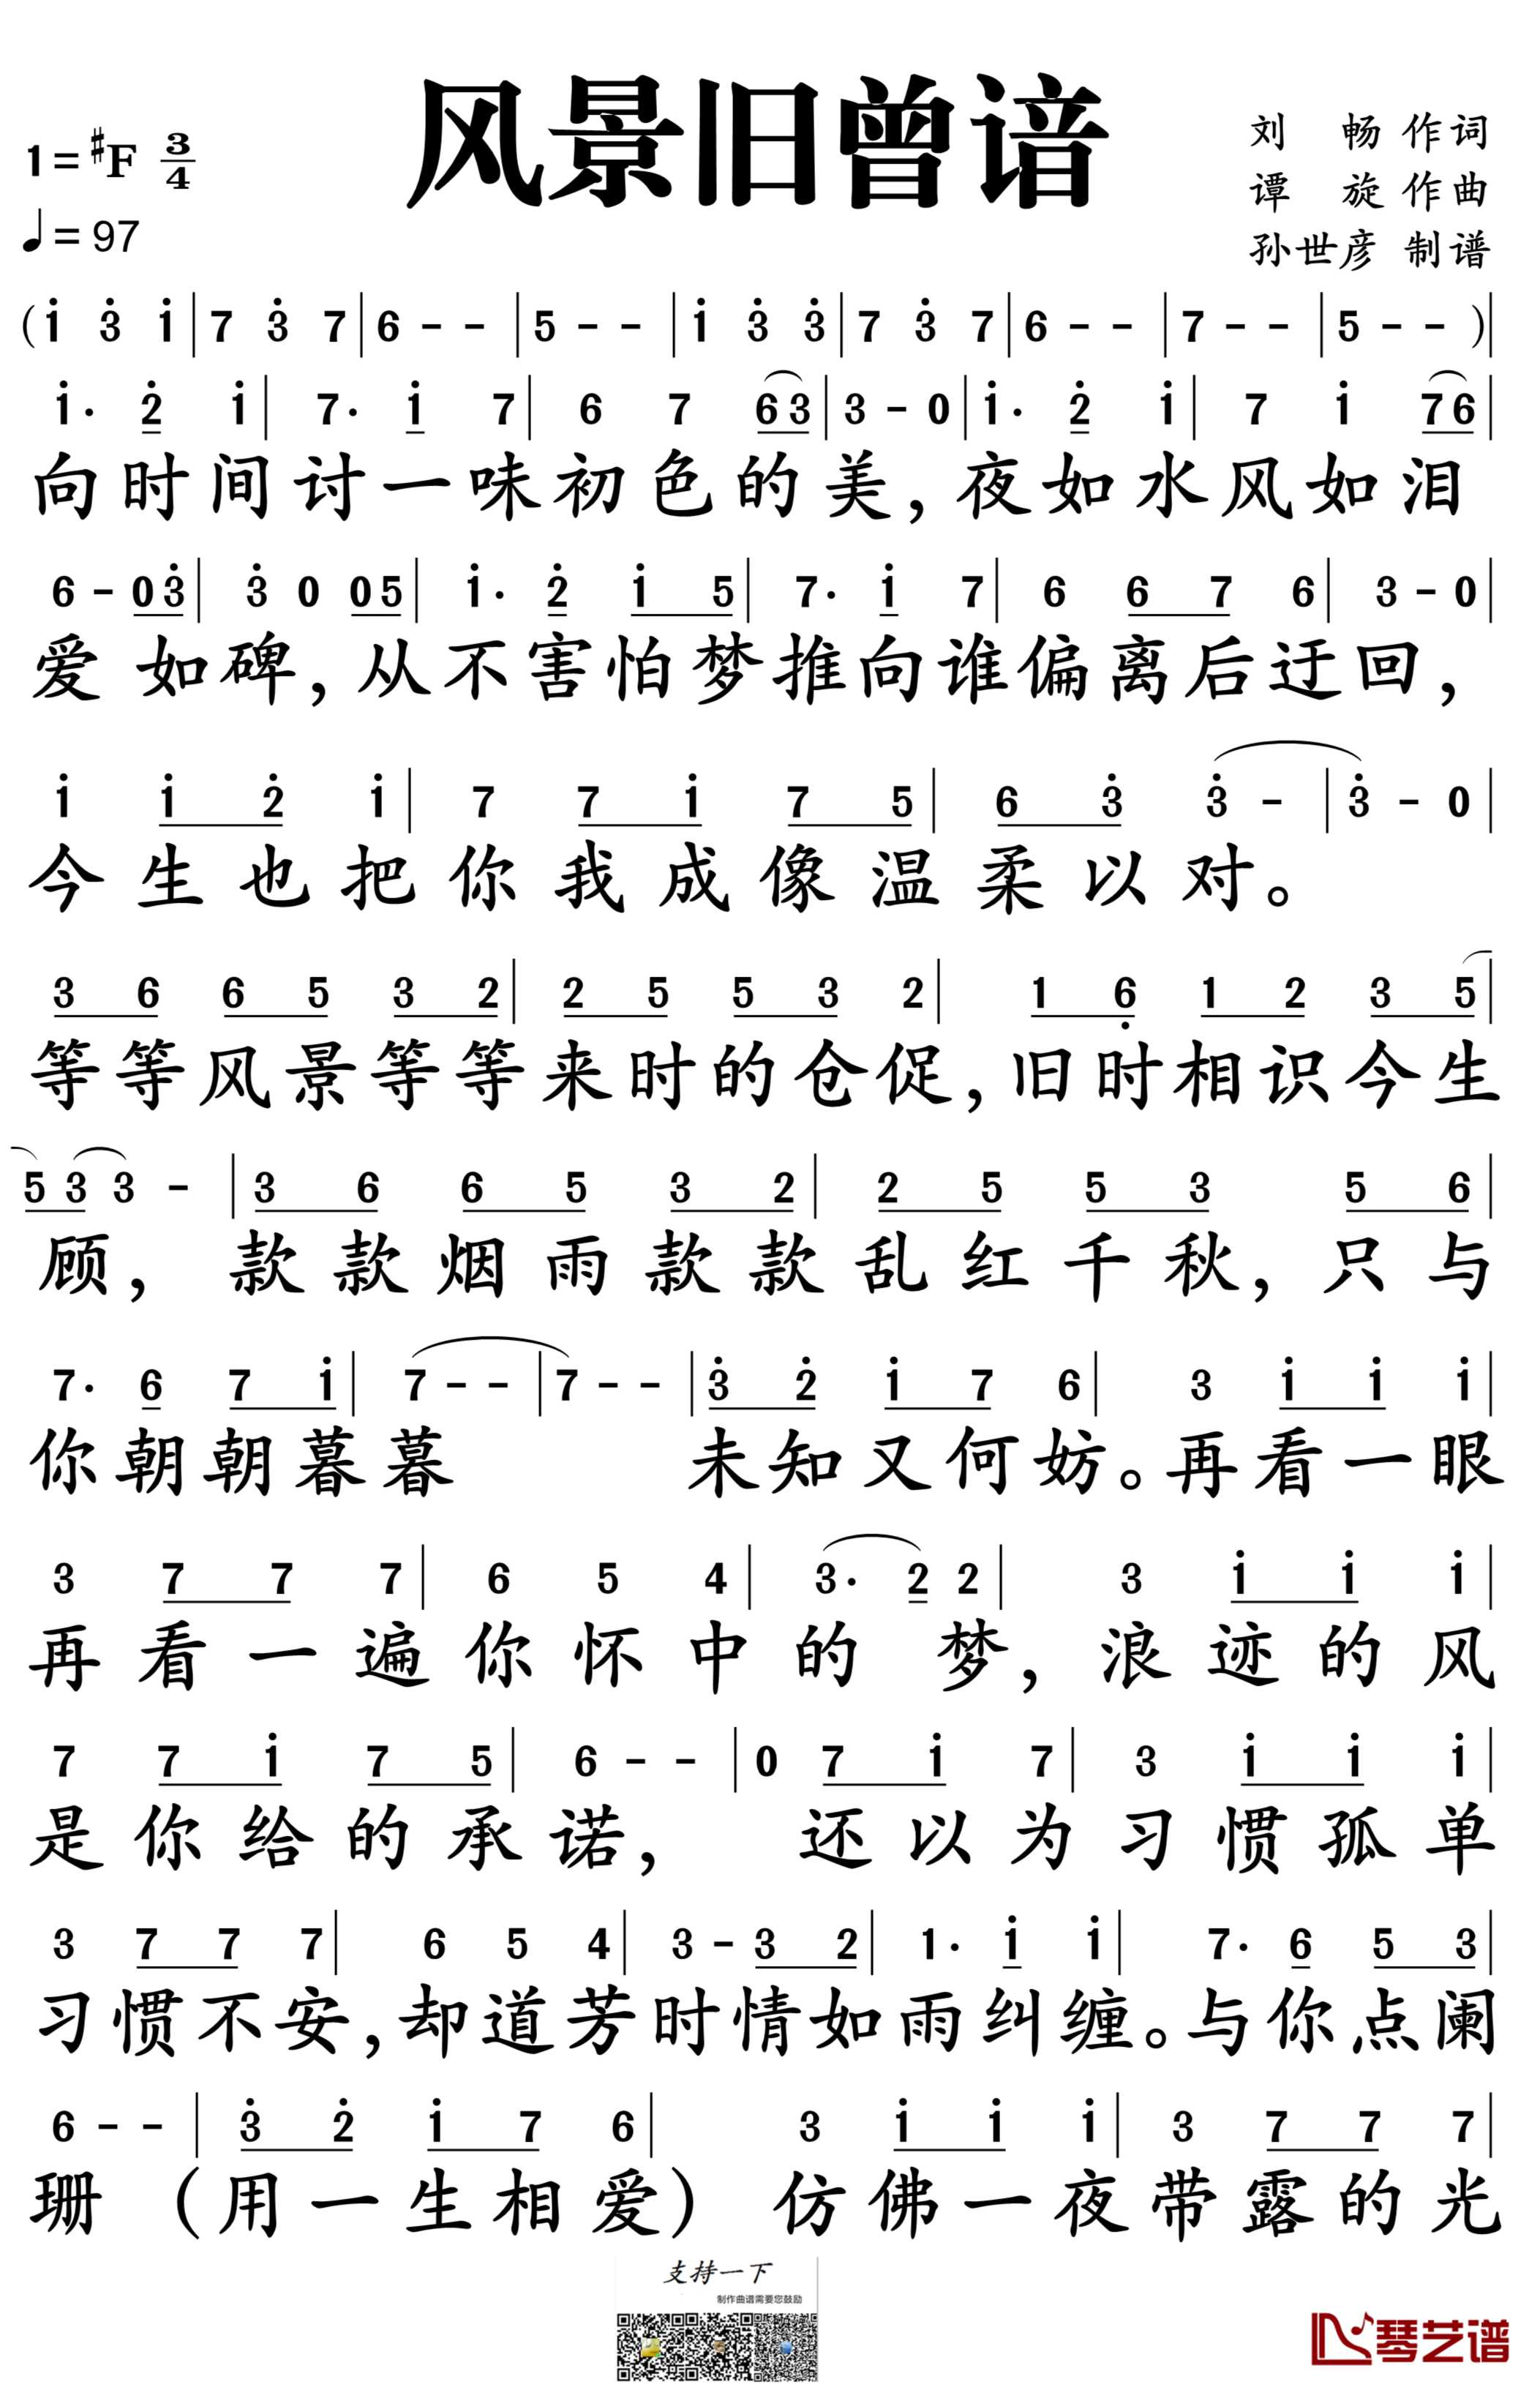 风景旧曾谙
1=♯F 3/4
♩=97
刘 畅 作词
谭 旋 作曲
孙世彦 制谱
(i 3̇ i|7 3̇ 7|6 - -|5 - -|i 3̇ 3̇|7 3̇ 7|6 - -|7 - -|5 - - )|
i· 2̇ i|7· i 7|6 7 63|3 - 0|i· 2̇ i|7 i 76|
向时间讨一味初色的美,夜如水风如泪
6 - 03̇|3̇ 0 05|i· 2̇ i 5|7· i 7|6 6 7 6|3 - 0|
爱如碑,从不害怕梦推向谁偏离后迂回,
i i 2̇ i|7 7 i 7 5|6 3̇ 3̇ -|3̇ - 0|
今生也把你我成像温柔以对。
3 6 6 5 3 2|2 5 5 3 2|1 6̣ 1 2 3 5|
等等风景等等来时的仓促,旧时相识今生
5 3 3 -|3 6 6 5 3 2|2 5 5 3 5 6|
顾,款款烟雨款款乱红千秋,只与
7· 6 7 i|7 - -|7 - -|3̇ 2̇ i 7 6|3 i i i|
你朝朝暮暮 未知又何妨。再看一眼
3 7 7 7|6 5 4|3· 2 2|3 i i i|
再看一遍你怀中的梦,浪迹的风
7 7 i 7 5|6 - -|0 7 i 7|3 i i i|
是你给的承诺,还以为习惯孤单
3 7 7 7|6 5 4|3 - 3 2|1· i i|7· 6 5 3|
习惯不安,却道芳时情如雨纠缠。与你点阑
6 - -|3̇ 2̇ i 7 6|3 i i i|3 7 7 7|
珊(用一生相爱)仿佛一夜带露的光
支持一下
制作曲谱需要您鼓励
琴艺谱